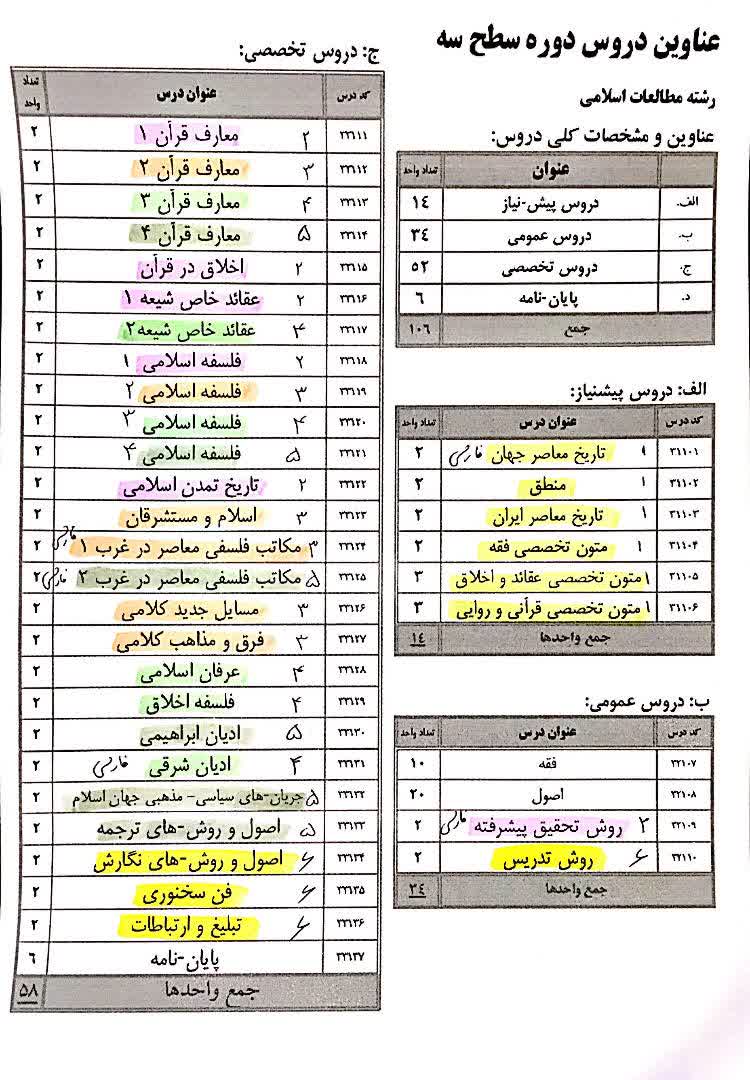 عناوین دروس دوره سطح سه
رشته مطالعات اسلامی
عناوین و مشخصات کلی دروس:
عنوان تعداد واحد
الف. دروس پیش-نیاز ۱۴
ب. دروس عمومی ۳۴
ج. دروس تخصصی ۵۲
د. پایان-نامه ۶
جمع ۱۰۶
الف: دروس پیشنیاز:
کد درس عنوان درس تعداد واحد
۳۱۱۰۱ ۱ تاریخ معاصر جهان فارسی ۲
۳۱۱۰۲ ۱ منطق ۲
۳۱۱۰۳ ۱ تاریخ معاصر ایران ۲
۳۱۱۰۴ ۱ متون تخصصی فقه ۲
۳۱۱۰۵ ۱ متون تخصصی عقائد و اخلاق ۳
۳۱۱۰۶ ۱ متون تخصصی قرآنی و روایی ۳
جمع واحدها ۱۴
ب: دروس عمومی:
کد درس عنوان درس تعداد واحد
۳۲۱۰۷ فقه ۱۰
۳۲۱۰۸ اصول ۲۰
۳۲۱۰۹ ۲ روش تحقیق پیشرفته فارسی ۲
۳۲۱۱۰ ۶ روش تدریس ۲
جمع واحدها ۳۴
ج: دروس تخصصی:
کد درس عنوان درس تعداد واحد
۳۳۶۱۱ ۲ معارف قرآن ۱ ۲
۳۳۶۱۲ ۳ معارف قرآن ۲ ۲
۳۳۶۱۳ ۴ معارف قرآن ۳ ۲
۳۳۶۱۴ ۵ معارف قرآن ۴ ۲
۳۳۶۱۵ ۲ اخلاق در قرآن ۲
۳۳۶۱۶ ۲ عقائد خاص شیعه ۱ ۲
۳۳۶۱۷ ۴ عقائد خاص شیعه ۲ ۲
۳۳۶۱۸ ۲ فلسفه اسلامی ۱ ۲
۳۳۶۱۹ ۳ فلسفه اسلامی ۲ ۲
۳۳۶۲۰ ۴ فلسفه اسلامی ۳ ۲
۳۳۶۲۱ ۵ فلسفه اسلامی ۴ ۲
۳۳۶۲۲ ۲ تاریخ تمدن اسلامی ۲
۳۳۶۲۳ ۳ اسلام و مستشرقان ۲
۳۳۶۲۴ ۳ مکاتب فلسفی معاصر در غرب ۱ فارسی ۲
۳۳۶۲۵ ۵ مکاتب فلسفی معاصر در غرب ۲ فارسی ۲
۳۳۶۲۶ ۳ مسایل جدید کلامی ۲
۳۳۶۲۷ ۳ فرق و مذاهب کلامی ۲
۳۳۶۲۸ ۴ عرفان اسلامی ۲
۳۳۶۲۹ ۴ فلسفه اخلاق ۲
۳۳۶۳۰ ۵ ادیان ابراهیمی ۲
۳۳۶۳۱ ۴ ادیان شرقی فارسی ۲
۳۳۶۳۲ ۵ جریان-های سیاسی- مذهبی جهان اسلام ۲
۳۳۶۳۳ ۵ اصول و روش-های ترجمه ۲
۳۳۶۳۴ ۶ اصول و روش-های نگارش ۲
۳۳۶۳۵ ۶ فن سخنوری ۲
۳۳۶۳۶ ۶ تبلیغ و ارتباطات ۲
۳۳۶۳۷ پایان-نامه ۶
جمع واحدها ۵۸